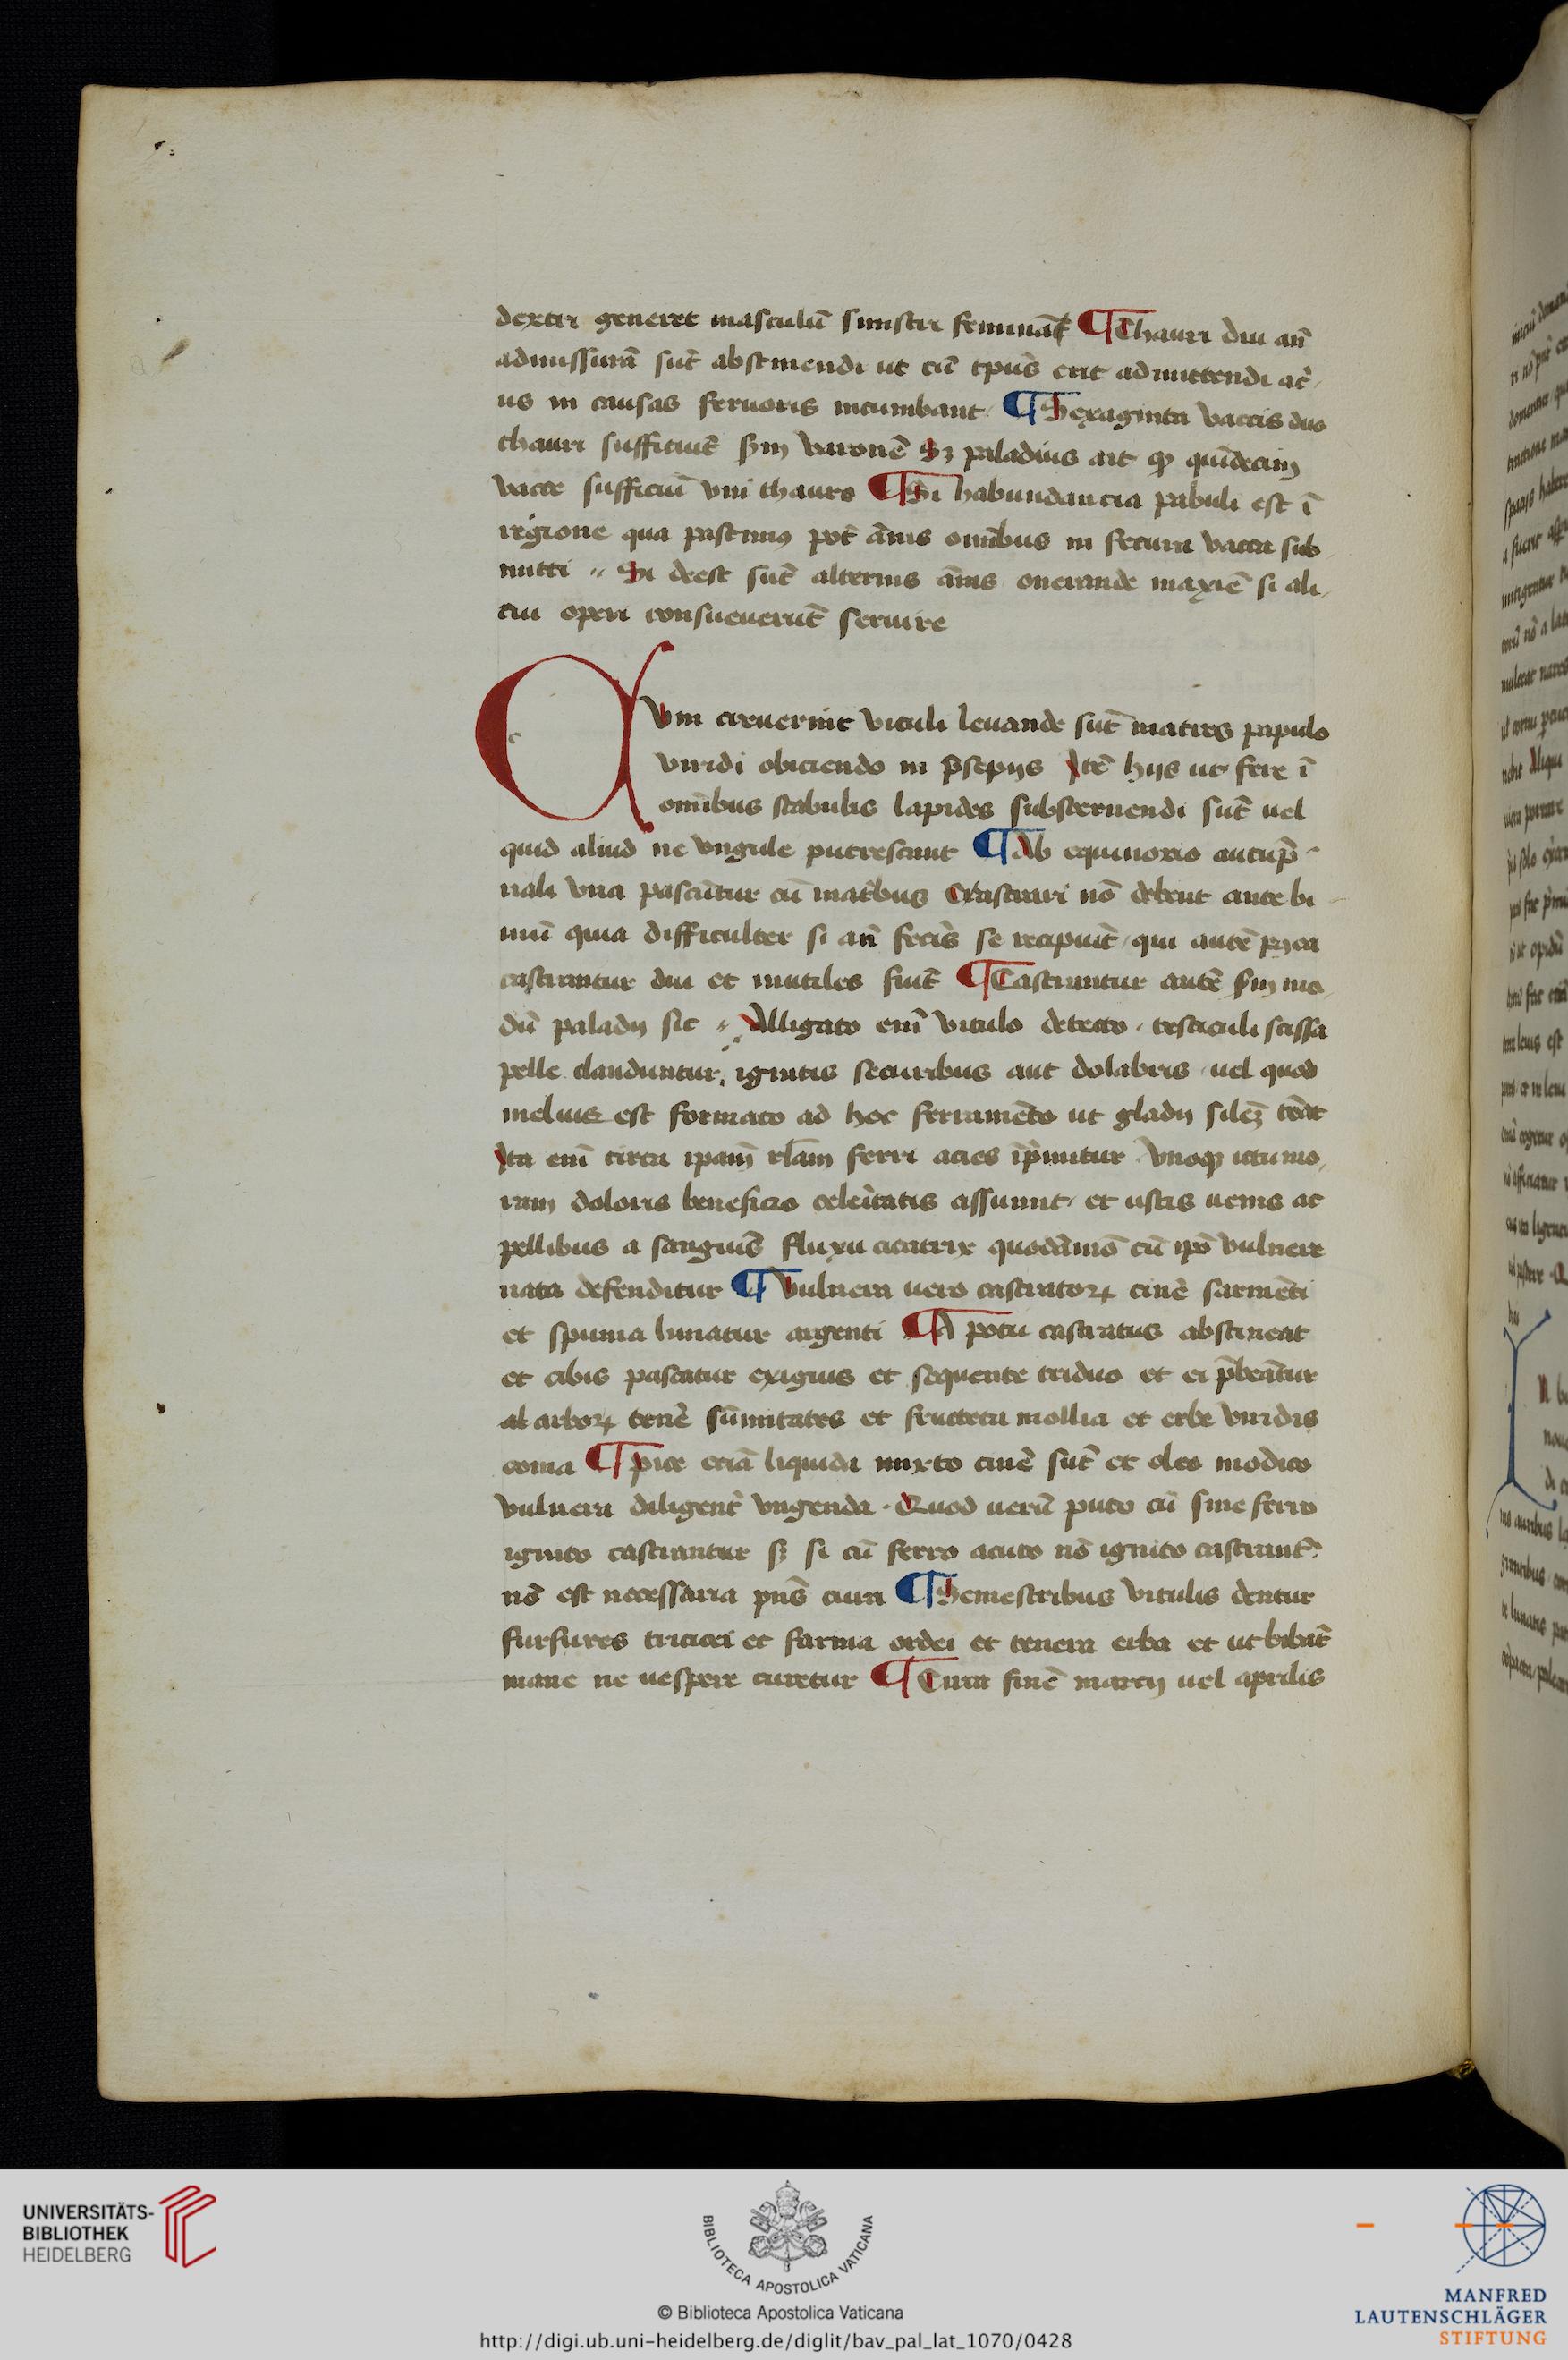 dextri generet masculū sinistri feminā ¶ Thauri diu an̄
admissurā sūt abstinendi ut cū tp̄us erit admittendi ac̄
us in causas feruoris incumbant ¶ Sexaginta vaccis duo
thauri sufficiūt sm varonē Sꝫ paladius ait qꝫ quīdecim
vacce sufficiū vni thauro ¶ Si habundancia pabuli est ī
regione qua pascimꝰ pōt ānis omībus in fetura vacca sub
mitti Si deest sūt alternis ānis onerande maxīē si ali
cui operi consueuerūt seruire
Cvm creuerint vituli leuande sūt matres papulo
viridi obiciendo in p̄sepijs Itē hijs ut fere ī
omībus stabulis lapides substernendi sūt uel
quid aliud ne vngule putrescant ¶ Ab equinoxio autūp̄
nali vna pascūtur cū mat̄bus Castrari nō debent ante bi
miū quia difficulter si an̄ fecis̄ se recipiūt qui autē pꝰea
castrantur diu et inutiles fiūt ¶ Castrantur autē sm mo
dū paladij sic Alligato enī vitulo detecto testiculi scissa
pelle clauduntur ignitis securibus aut dolabris uel quod
melius est formato ad hoc ferramēto ut gladij silēꝫ
Ita enī circa ipam̄ rl̄am ferri acies īp̄mitur vnoqꝫ ictu mo
ram doloris beneficio celeītatis assumit et ustis uenis ac
pellibus a sanguīs fluxu cicatrix quodāmō cū ip̄o vulnere
nata defenditur ¶ vulnera uero castratoꝝ cinē sarmēti
et spuma linatur argenti ¶ A potu castratus abstineat
et cibis pascatur exiguis et sequente triduo et ei p̄beātur
al arboꝝ tenē sūmitates et fructeta mollia et erbe viridis
coma ¶ pice eciā liquida mixto cinē sūt et oleo modico
vulnera diligent̄ vngenda Quod uerū puto cū sine ferro
ignito castrantur sꝫ si cū ferro acuto nō ignito castrant̄
nō est necessaria pn̄s cura ¶ Semestribus vitulis dentur
furfures triticei et farina ordei et tenera erba et ut bibāt
mane ne uespere curetur ¶ Cura finē marcij uel aprilis
UNIVERSITÄTS-
BIBLIOTHEK
HEIDELBERG
BIBLIOTECA APOSTOLICA VATICANA
© Biblioteca Apostolica Vaticana
http://digi.ub.uni-heidelberg.de/diglit/bav_pal_lat_1070/0428
MANFRED
LAUTENSCHLÄGER
STIFTUNG